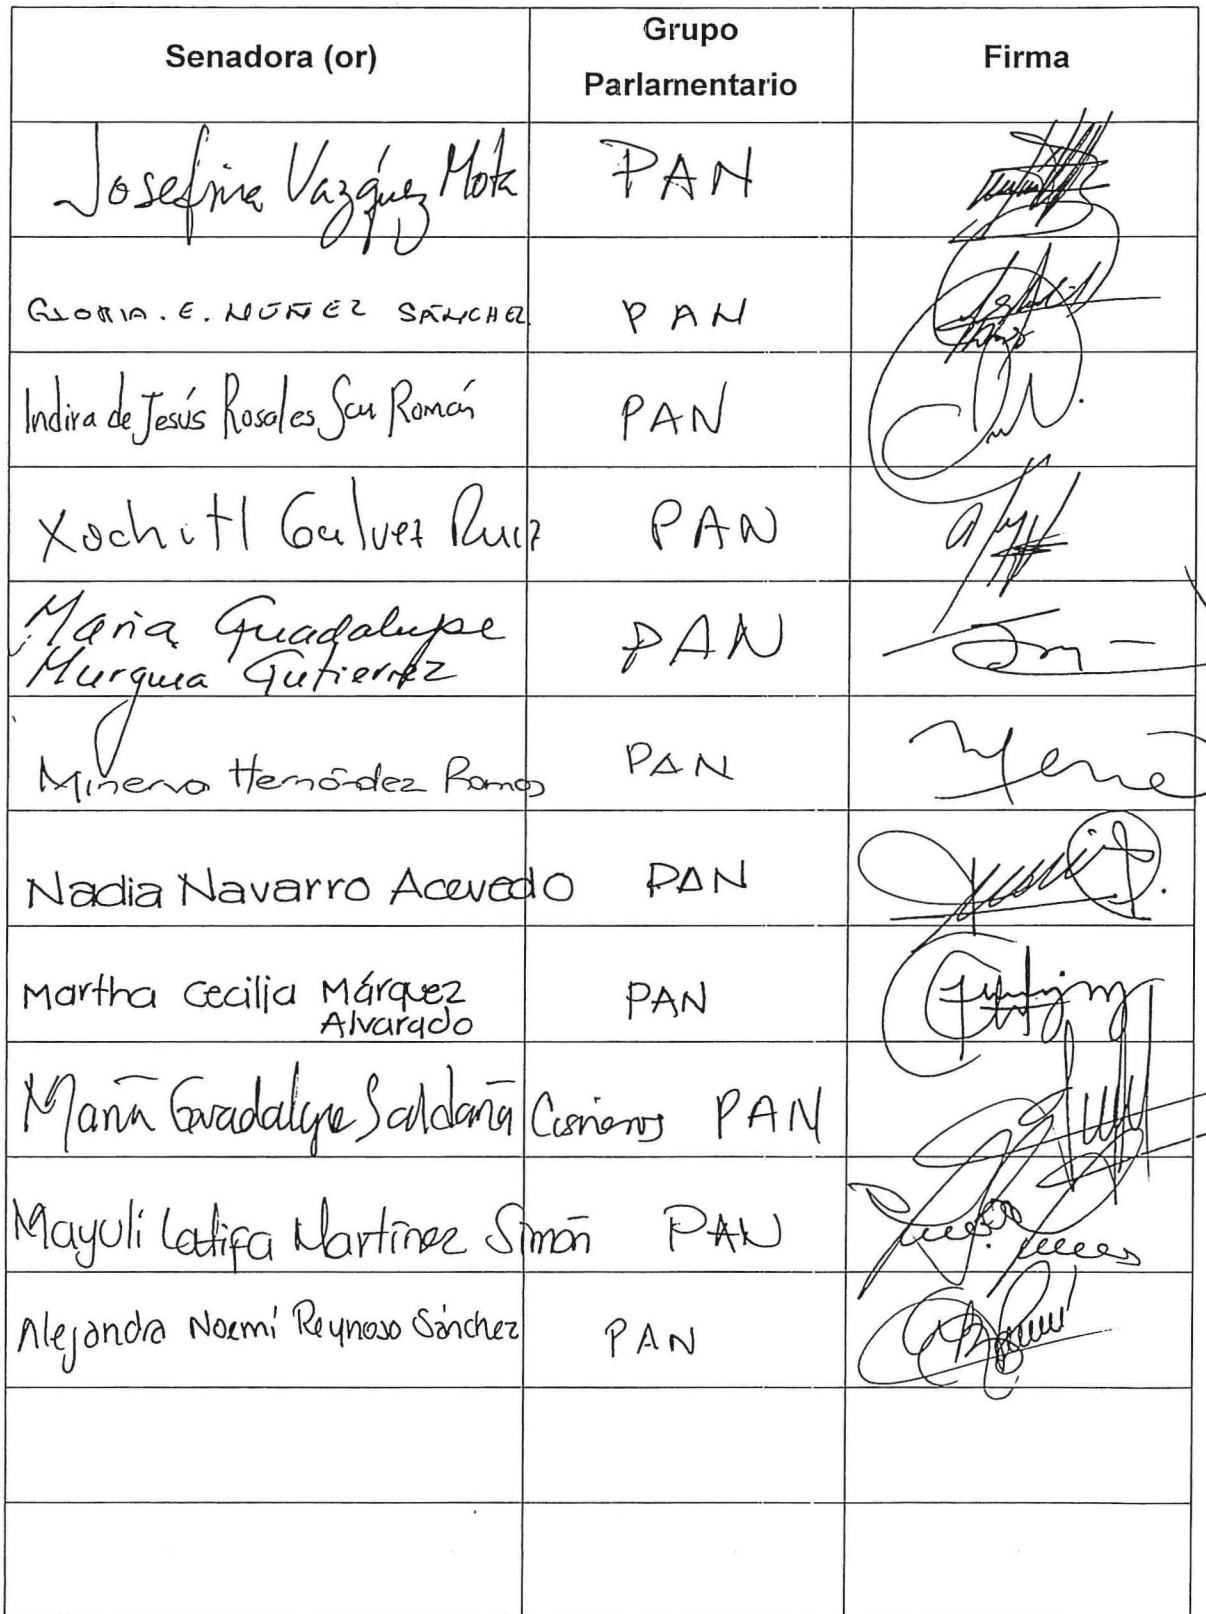 Senadora (or)
Grupo
Parlamentario
Firma
Josefina Vazquez Mota PAN
GLORIA. E. NÚÑEZ SÁNCHEZ PAN
Indira de Jesús Rosales San Román PAN
Xochitl Galvez Ruiz PAN
Maria Guadalupe
Murguia Gutierrez PAN
Minerva Hernández Ramos PAN
Nadia Navarro Acevedo PAN
Martha Cecilia Márquez
Alvarado PAN
María Guadalupe Saldaña Cisneros PAN
Mayuli Latifa Martínez Simón PAN
Alejandra Noemí Reynoso Sánchez PAN